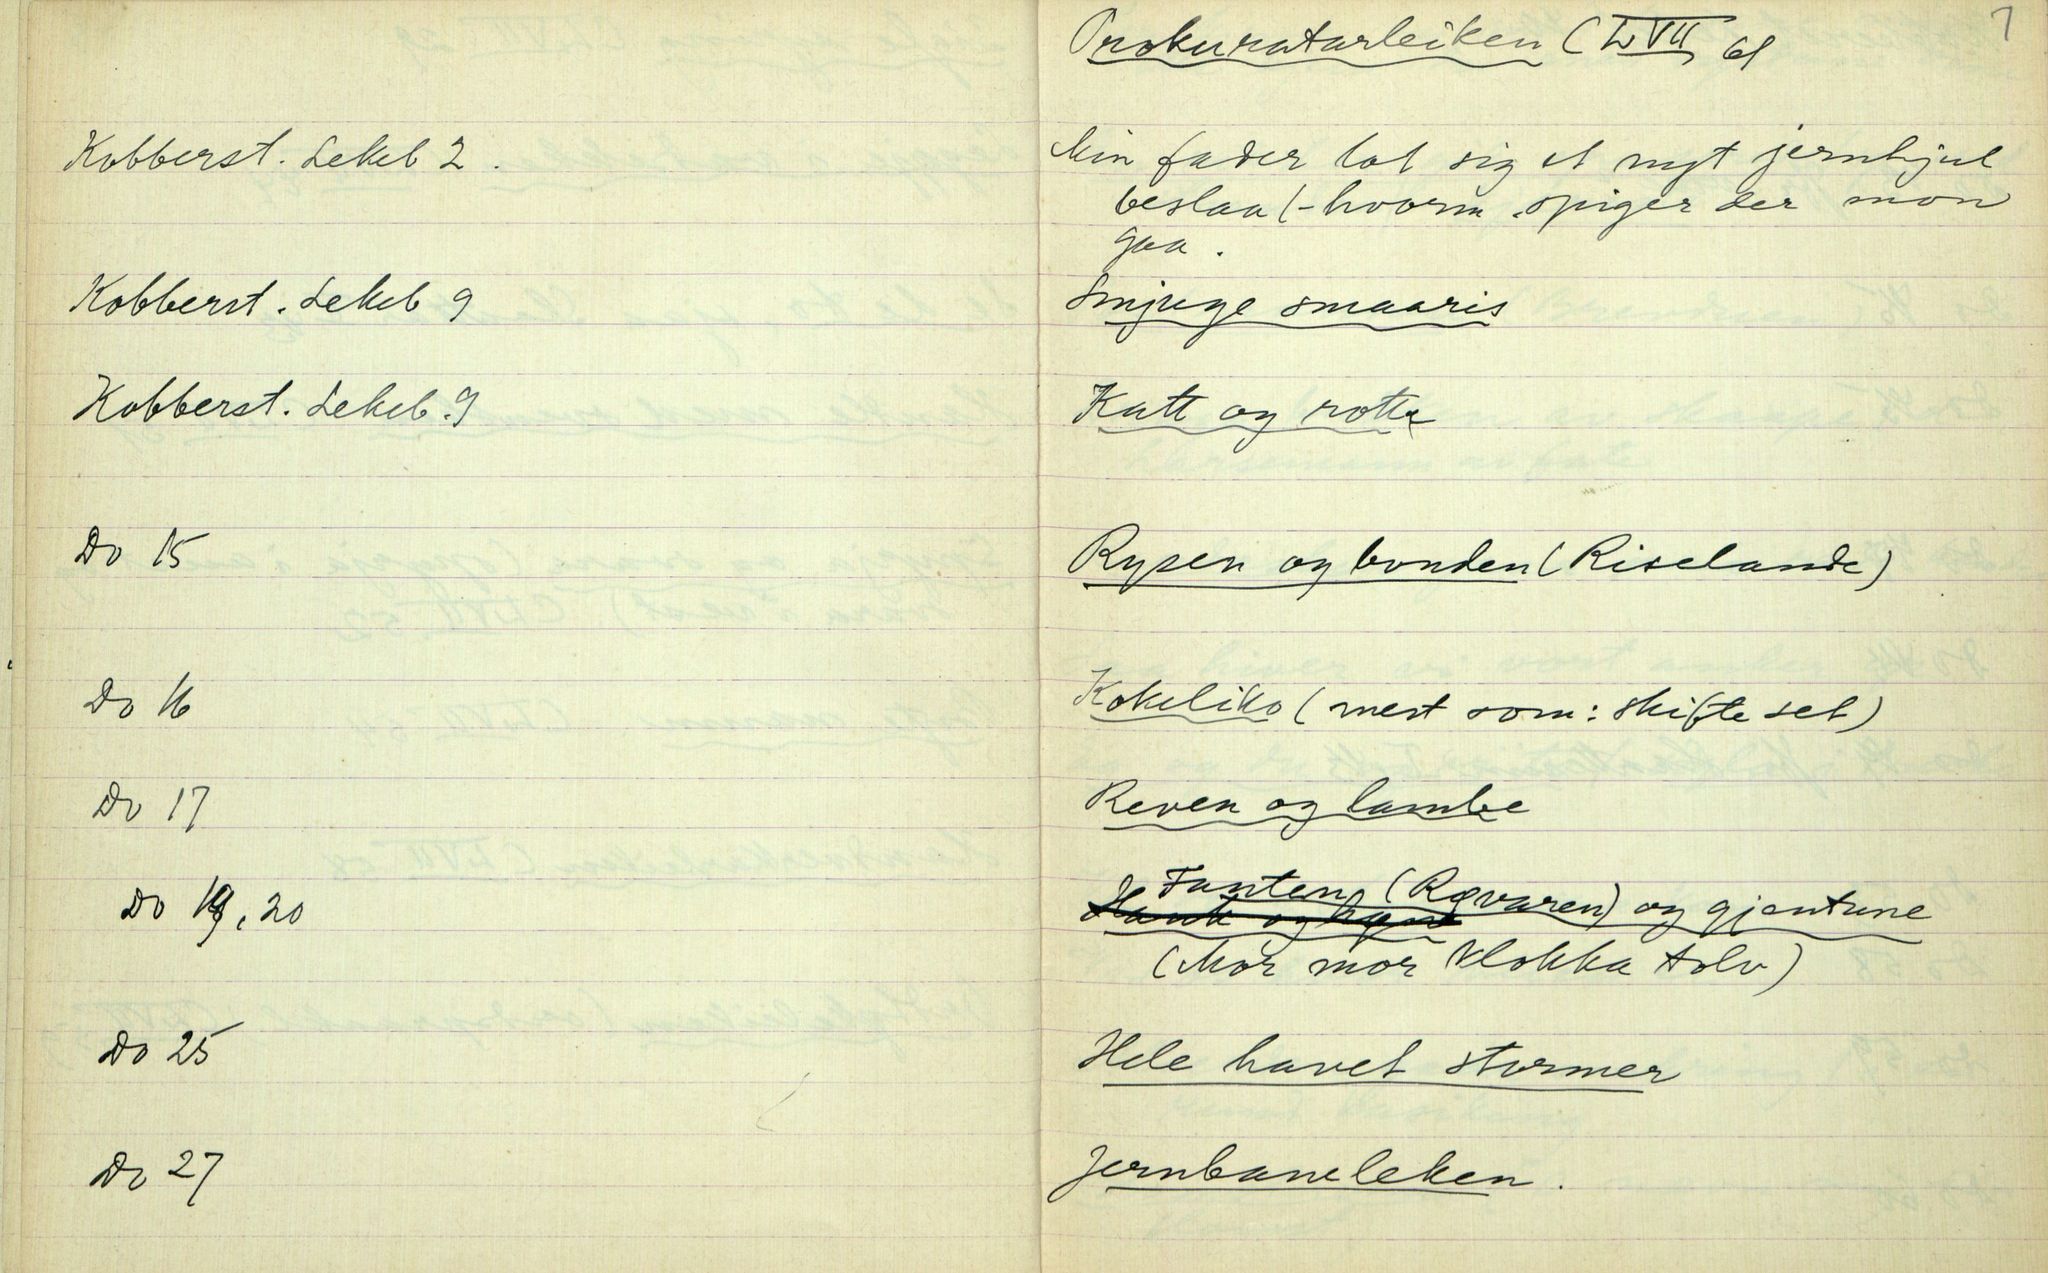 7
Prokuratarleiken (LVII 61
Kobberst. Lekeb 2.
Min fader lot sig et nyt jernhjul
beslaa (- hvorm. spiger der mon
gaa.
Kobberst. Lekeb 9
Smjuge smaaris
Kobberst. Lekeb. 9
Katt og rotta
Do 15
Rysen og bonden (Riselande)
Do 16
Kokeliko (mest som: skifte set)
Do 17
Reven og lambe
Do 19, 20
Fanten (Røvaren) og gjentune
(Mor mor klokka tolv)
Do 25
Hele havet stormer
Do 27
Jernbaneleken.